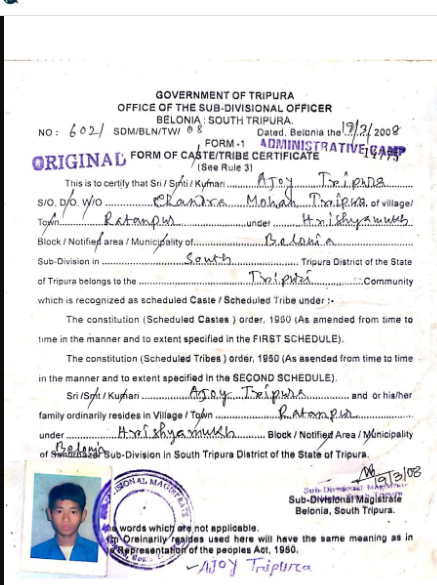 GOVERNMENT OF TRIPURA
OFFICE OF THE SUB-DIVISIONAL OFFICER
BELONIA : SOUTH TRIPURA.
NO : 602/ SDM/BLN/TW/ 08 Dated, Belonia the 19/3/2008
FORM -1 ADMINISTRATIVE CAMP
ORIGINAL FORM OF CASTE/TRIBE CERTIFICATE
(See Rule 3)
This is to certify that Sri / Smti / Kumari Ajoy Tripura
S/O, D/O, W/O Chandra Mohan Tripura, of village/
Town Ratanpur under Hrishyamukh
Block / Notified area / Municipality of Belonia
Sub-Division in South Tripura District of the State
of Tripura belongs to the Tripuri Community
which is recognized as scheduled Caste / Scheduled Tribe under :-
The constitution (Scheduled Castes ) order, 1950 (As amended from time to
time in the manner and to extent specified in the FIRST SCHEDULE).
The constitution (Scheduled Tribes ) order, 1950 (As asended from time to time
in the manner and to extent specified in the SECOND SCHEDULE).
Sri / Smt / Kumari Ajoy Tripura and or his/her
family ordinarily resides in Village / Town Ratanpur
under Hrishyamukh Block / Notified Area / Municipality
of Belonia Sub-Division in South Tripura District of the State of Tripura.
19/3/08
Sub-Divisional Magistrate
Sub-Divisional Magistrate
Belonia, South Tripura.
SIONAL MAGISTRATE
words which are not applicable.
Oreinarily resides used here will have the same meaning as in
Representation of the peoples Act, 1950.
AJOY Tripura